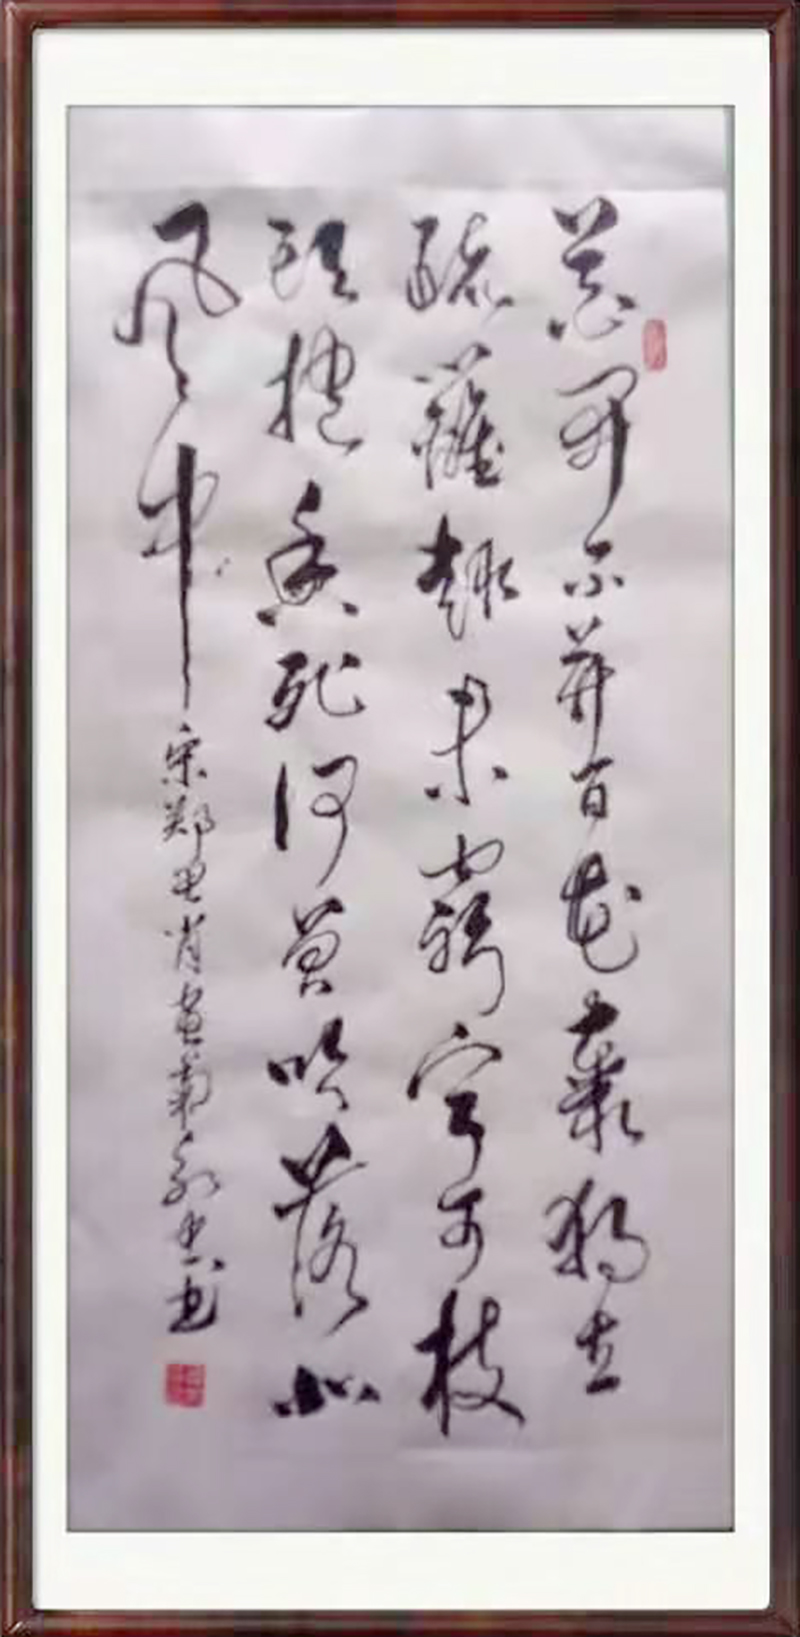 花开不并百花叢獨立
疏籬趣未窮宁可枝
頭抱香死何曾吹落北
风中
宋郑思肖画菊 书